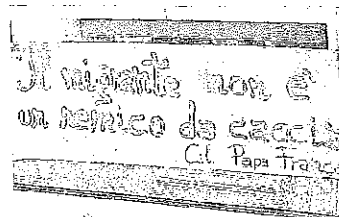 Il migrante non è
un nemico da caccia
Cit. Papa Franc